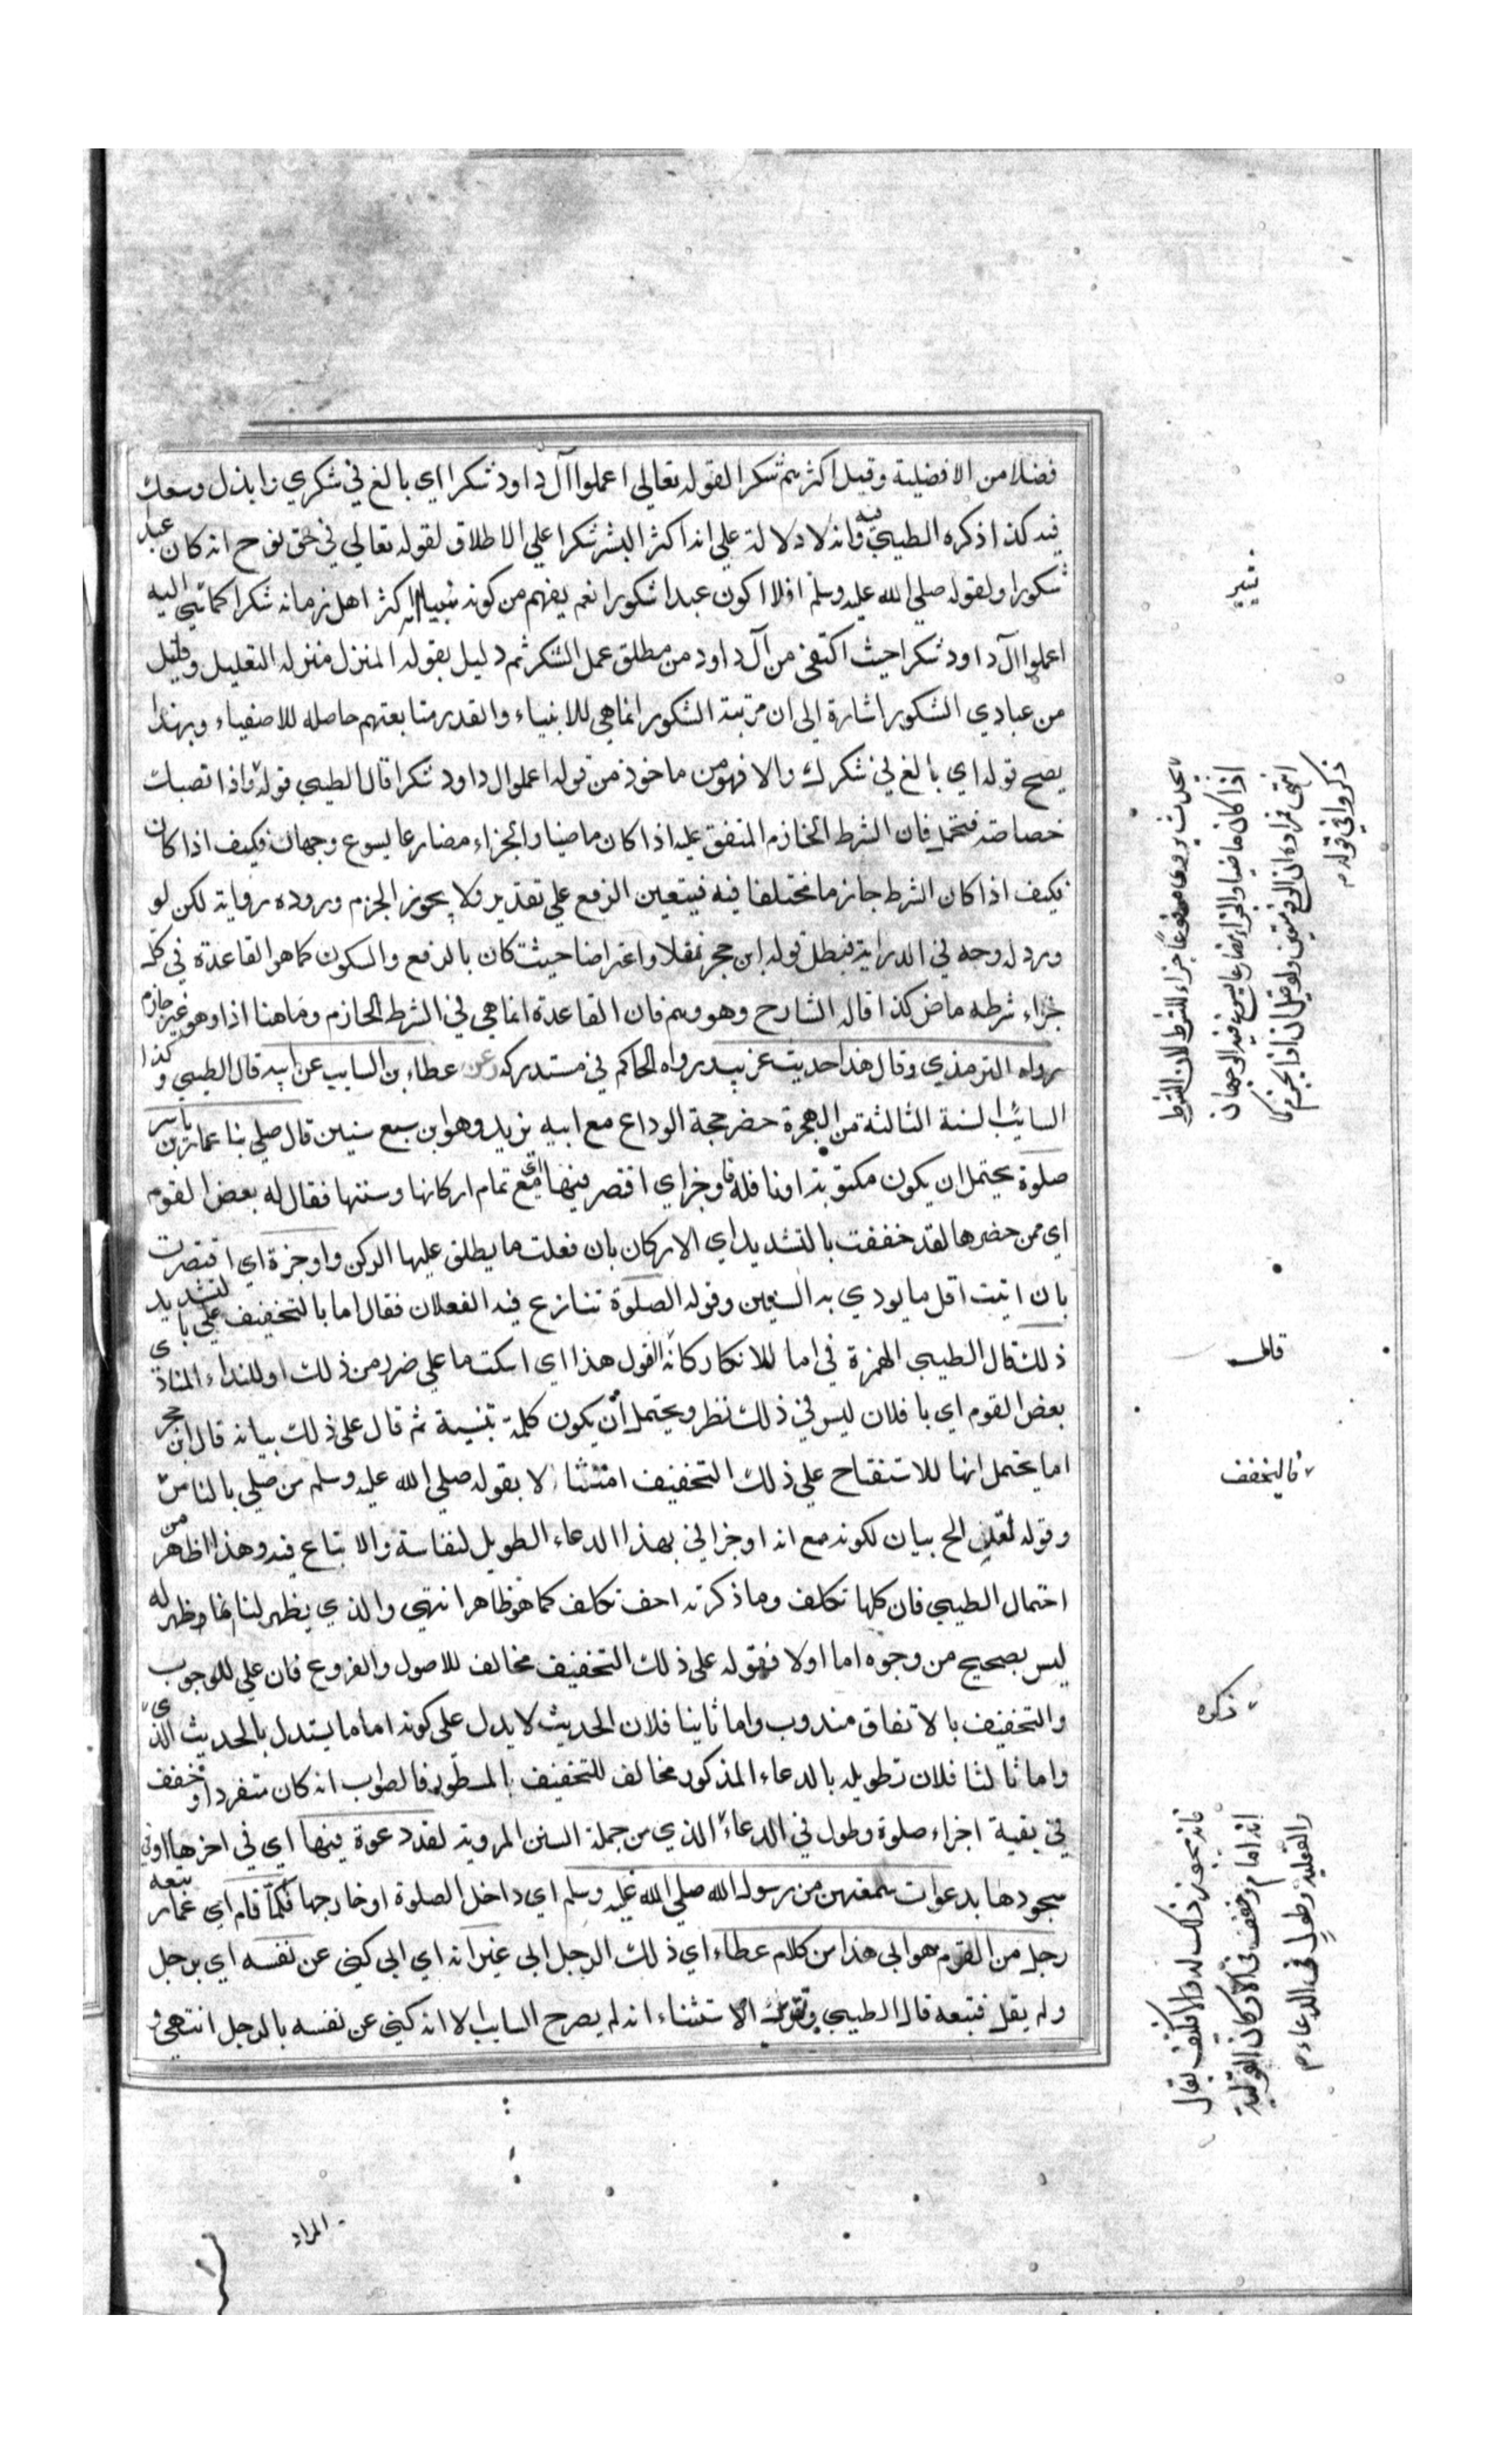 فضلا من الافضلية وقيل اكثرهم شكرا لقوله تعالى اعملوا آل داود شكرا اي بالغ في شكري وابذل وسعك
فيه كذا ذكره الطيبي وفيه انه لا دلالة علي انه اكثر البشر شكرا علي الاطلاق لقوله تعالي في حق نوح انه كان عبدا
شكورا ولقوله صلي الله عليه وسلم افلا اكون عبدا شكورا نعم يفهم من كونه نبيا انه اكثر اهل زمانه شكرا كما اليه
اعملوا آل داود شكرا حيث اكتفي من آل داود من مطلق عمل الشكر ثم دليل بقوله المنزل منزله التعليل وقليل
من عبادي الشكور اشارة الى ان مرتبة الشكور انما هي للانبياء والقدر متابعتهم حاصله للاصفياء وبهذا
يصح قوله اي بالغ في شكرك والا فهو من ماخوذ من قوله اعملو ال داود شكرا قال الطيبي قوله واذا تصبك
خصاصة فتحمل فان الشرط الجازم المتفق عليه اذا كان ماضيا والجزاء مضارعا يسوع وجهان فكيف اذا كان
فكيف اذا كان الشرط جازما مختلفا فيه فيتعين الرفع علي تقدير ولا يجوز الجزم وروده رواية لكن لو
ورد له وجه في الدراية فبطل قوله ابن حجر نقلا واعتراضا حيث كان بالرفع والسكون كما هو القاعدة في كل
جزاء شرطه ماض كذا قاله الشارح وهو وهم فان القاعدة انما هي في الشرط الجازم وما هنا اذا وهو غير جازم
رواه الترمذي وقال هذا حديث غريب ورواه الحاكم في مستدركه وعن عطاء بن السايب عن ابيه قال الطيبي و كذا
السايب لسنة الثالثة من الهجرة حضر حجة الوداع مع ابيه يزيد وهو ابن سبع سنين قال صلي بنا عمار بن ياسر
صلوة يحتمل ان يكون مكتوبة او نافلة فاوجز اي اقتصر فيها اي مع تمام اركانها وسنتها فقال له بعض القوم
اي ممن حضرها لقد خففت بالتشديد اي الاركان بان فعلت ما يطلق عليها الركن واوجزة اي اقتصرت
بان اتيت اقل ما يودي به السنن وقوله الصلوة تنازع فيه الفعلان فقال اما بالتخفيف علي بالتشديد
ذلك قال الطيبي الهمزة في اما للانكار كانه القول هذا اي اسكت ما علي ضرر من ذلك او للنداء المنادى
بعض القوم اي يا فلان ليس في ذلك نظر ويحتمل ان يكون كلمة تنبيه ثم قال علي ذلك بيانه قال ابن حجر
اما يحتمل انها للاستفتاح علي ذلك التخفيف امتثالا بقوله صلي الله عليه وسلم من صلي بالناس
وقوله لقد الخ بيان لكونه مع انه اوجز اني بهذا الدعاء الطويل لنفاسة والاتباع فيه وهذا اظهر من
احتمال الطيبي فان كلها تكلف وما ذكرته اخف تكلف كما هو ظاهر انتهي والذي يظهر لنا انما وظهر له
ليس بصحيح من وجوه اما اولا فقوله علي ذلك التخفيف مخالف للاصول والفروع فان علي للوجوب
والتخفيف بالاتفاق مندوب واما ثانيا فلان الحديث لا يدل علي كونه اماما يستدل بالحديث الذي
واما ثالثا فلان تطويله بالدعاء المذكور مخالف للتخفيف المسطور فالصواب انه كان متفردا وخفف
في بقية اجزاء صلوة وطول في الدعاء الذي من جملة السنن المروية لقد دعوة فيها اي في اخرها او في
سجودها بدعوات سمعتهن من رسول الله صلي الله عليه وسلم اي داخل الصلوة او خارجها فلما قام اي عمار تبعه
رجل من القوم هو ابي هذا من كلام عطاء اي ذلك الرجل ابي غير انه اي ابي كني عن نفسه اي برجل
ولم يقل فتبعه قال الطيبي وتقدير الاستثناء انه لم يصرح السايب الا انه كني عن نفسه بالرجل انتهي و
المراد
يحدث يروى مرفوعا جزاء للشرط لان الشرط
اذا كان ماضيا والجزاء مضارعا يسوغ فيه الوجهان
انتهي فمراده ان الرفع متعين ولو قيل ان اذا يجزم كما
ذكروا في قوله م
قال
فالخفف
ذكره
فانه يجوز ذلك له والا فكيف يقال
انه امام وخفف في الاركان القولية
والفعلية وطول في الدعاء م